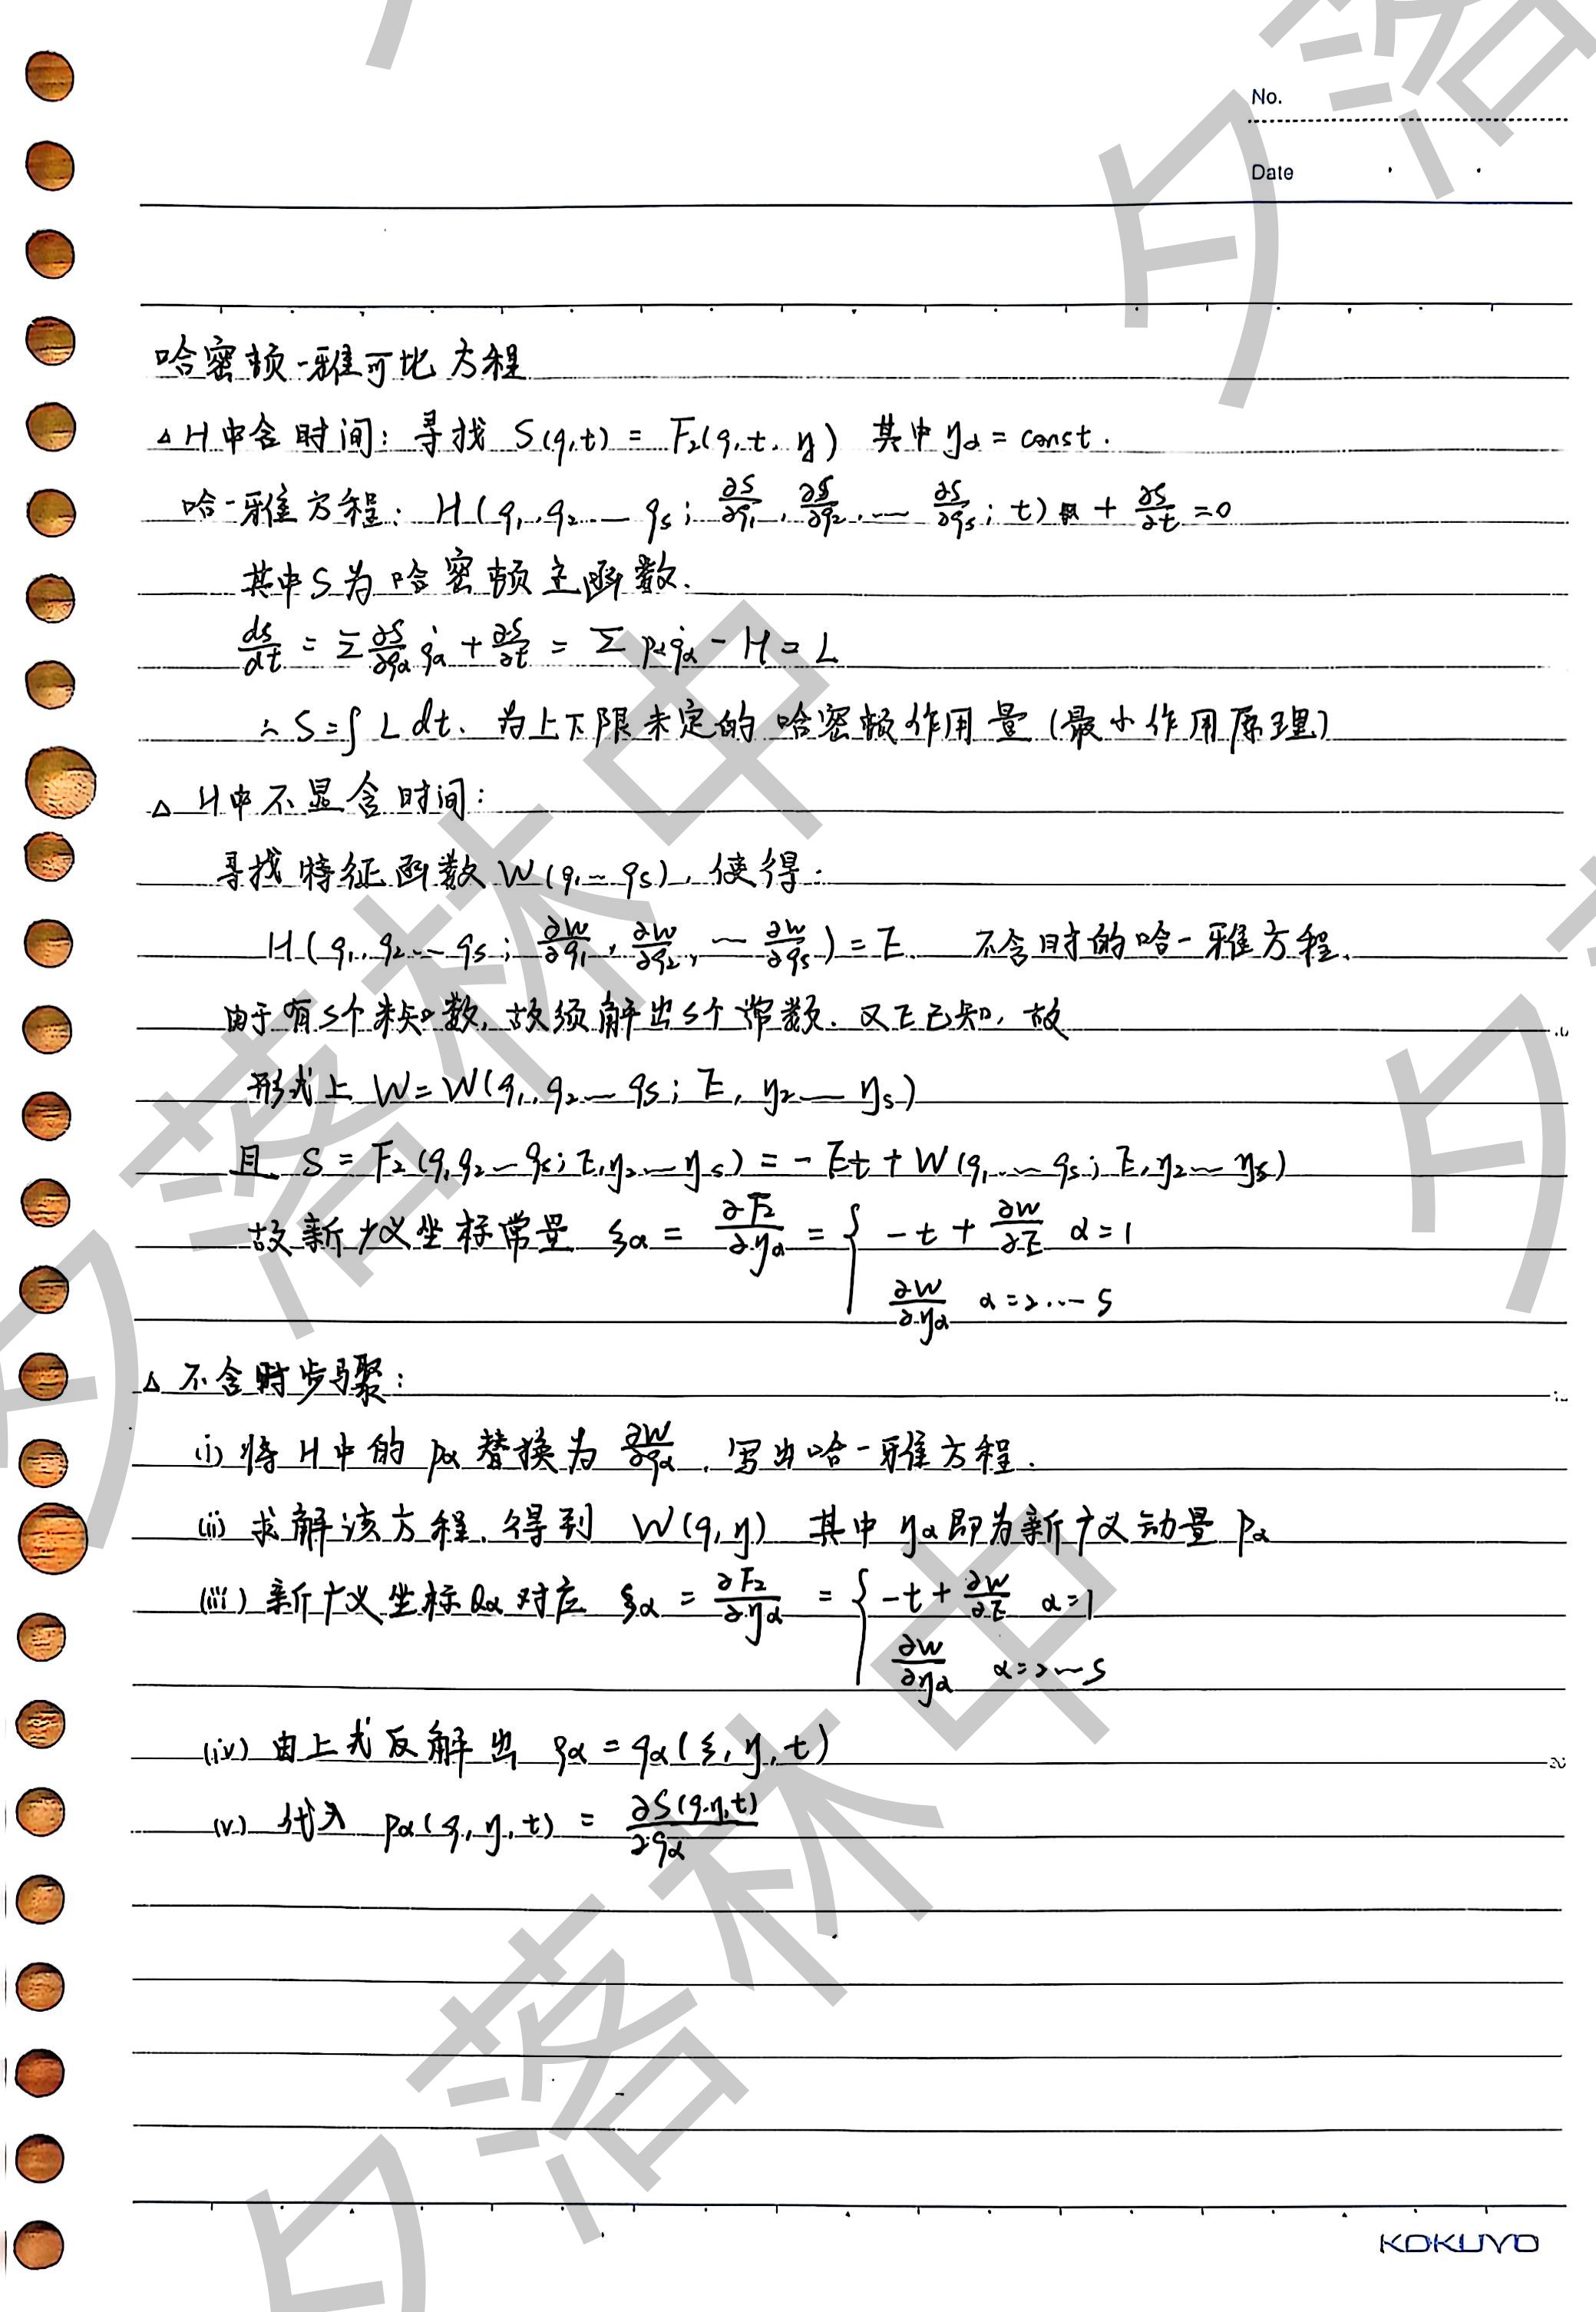 No.
Date
哈密顿-雅可比方程
△ H中含时间: 寻找 S(q,t) = F₂(q,t,η) 其中 ηα = const.
哈-雅方程: H(q₁,q₂…qs; ∂S/∂q₁, ∂S/∂q₂, … ∂S/∂qs; t) + ∂S/∂t = 0
其中S为哈密顿主函数.
dS/dt = Σ ∂S/∂qα q̇α + ∂S/∂t = Σ pα q̇α - H = L
∴ S = ∫ L dt. 为上下限未定的哈密顿作用量 (最小作用原理)
△ H中不显含时间:
寻找特征函数 W(q₁…qs), 使得:
H(q₁,q₂…qs; ∂W/∂q₁, ∂W/∂q₂, … ∂W/∂qs) = E. 不含时的哈-雅方程.
由于有s个未知数, 故须解出s个常数. 又E已知, 故
形式上 W = W(q₁,q₂…qs; E, η₂…ηs)
且 S = F₂(q₁q₂…qs; E,η₂…ηs) = -Et + W(q₁…qs; E,η₂…ηs)
故新广义坐标常量 ξα = ∂F₂/∂ηα = { -t + ∂W/∂E α=1
∂W/∂ηα α=2…s
△ 不含时步骤:
(i) 将H中的 pα 替换为 ∂W/∂qα, 写出哈-雅方程.
(ii) 求解该方程, 得到 W(q,η) 其中 ηα 即为新广义动量 Pα
(iii) 新广义坐标 Qα 对应 ξα = ∂F₂/∂ηα = { -t + ∂W/∂E α=1
∂W/∂ηα α=2…s
(iv) 由上式反解出 qα = qα(ξ,η,t)
(v) 代入 pα(q,η,t) = ∂S(q,η,t)/∂qα
KOKUYO
夕落林中
夕落林中
夕落
夕